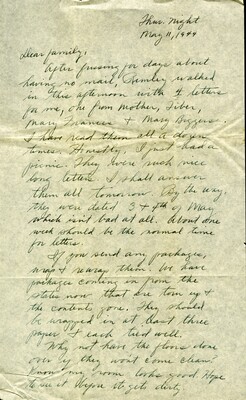 Thur. Night
May 11, 1944
Dear Family,
After fussing for days about
having no mail, walked
in this afternoon with 4 letters
for me, one from Mother, Tiber,
Mary Frances & Mary Biggers.
I have read them all a dozen
times. Honestly, I just had a
picnic. They were such nice
long letters. I shall answer
them all tomorrow. By the way,
they were dated 3 & 4th of May
which isn't bad at all. About one
week should be the normal time
for letters.
If you send any packages,
wrap & rewrap them. We have
packages coming in from the
states now that are torn up &
the contents gone. They should
be wrapped in at least three
papers & each tied well.
Why not have the floors done
over if they wont come clean?
know my room looks good. Hope
to see it before it gets dirty.